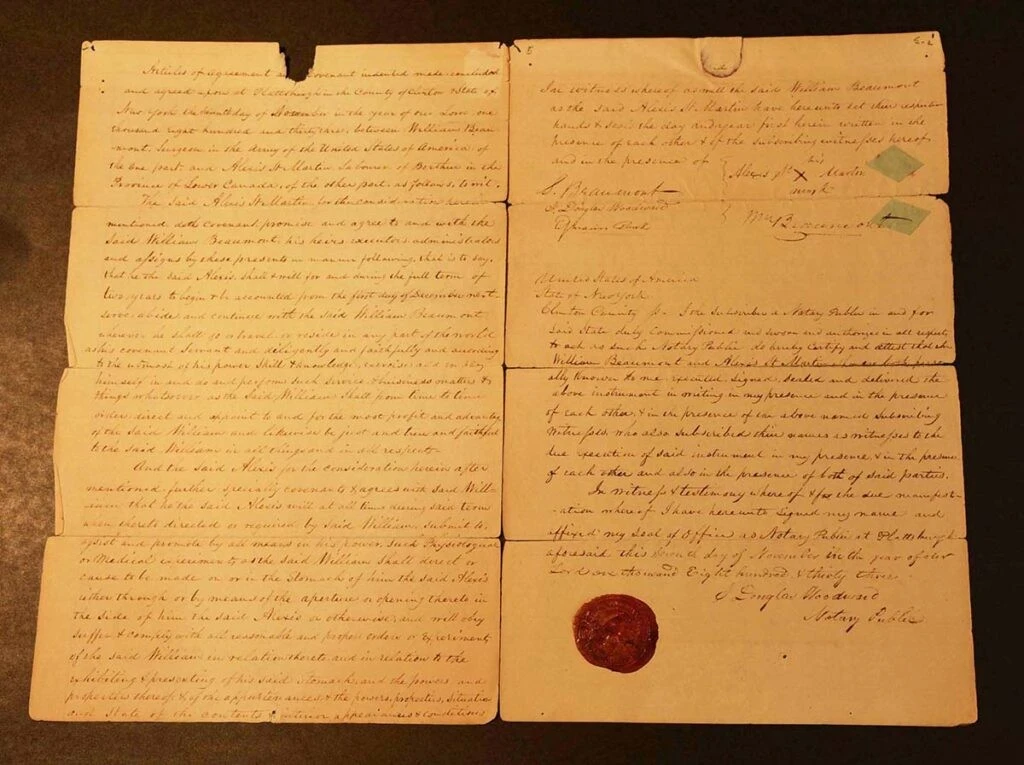 Articles of agreement an Covenant indented made concluded
and agreed upon at Plattsburgh in the County of Clinton & State of
New York the Seventh day of November in the year of our Lord one
thousand eight hundred and thirty three, between William Beau-
mont, Surgeon in the Army of the United States of America, of
the one part, and Alexis St. Martin, Labourer of Berthier in the
Province of Lower Canada, of the other part, as follows, to wit.
The Said Alexis St. Martin for the consideration herein
mentioned doth Covenant promise and agree to and with the
Said William Beaumont, his heirs executors administrators
and assigns by these presents in manner following, that is to say,
that he the said Alexis, shall & will for and during the full term of
two years to begin & be accounted from the first day of December next
serve, abide and continue with the said William Beaumont
wherever he shall go or travel or reside in any part of the world
as his covenant Servant and diligently and faithfully and according
to the utmost of his power Skill & knowledge, exercise and
himself in and do and perform such Service & business matters &
things whatsoever as the Said William shall from time to time
order, direct and appoint to and for the most profit and advantage
of the said William and likewise be just and true and faithful
to the said William in all things and in all respects.
And the said Alexis for the consideration herein after
mentioned further Specially covenants & agrees with said Will-
iam that he the said Alexis will at all times during said term
when thereto directed or required by said William, Submit to,
assist and promote by all means in his power, such Physiological
or Medical experiments as the said William shall direct or
cause to be made on or in the Stomach of him the said Alexis
either through or by means of the aperture or opening thereto in
the Side of him the said Alexis or otherwise, and will obey
Suffer & comply with all reasonable and proper orders or Experiments
of the said William in relation thereto and in relation to the
exhibiting & presenting of his said Stomach and the powers and
properties thereof & of the appurtenances & the powers, properties, Situation
and State of the contents & interior appearances & conditions
E
In witness whereof as well the said William Beaumont
as the said Alexis St. Martin have hereunto set their respective
hands & seals the day and year first herein written in the
presence of each other & of the subscribing witnesses hereof
and in the presence of
Alexis St. X his Martin
mark
S. Beaumont
S. Douglas Woodward
Wm Beaumont
Ephraim
United States of America
State of New York
Clinton County ss. I the Subscriber a Notary Public in and for
Said State duly Commissioned and sworn and authorized in all respects
to act as such Notary Public do hereby Certify and attest that the
William Beaumont and Alexis St. Martin to me both person-
ally known to me executed, Signed, Sealed and delivered the
above instrument in writing in my presence and in the presence
of each other, & in the presence of the above named Subscribing
Witnesses, who also Subscribed their names as witnesses to the
due execution of said instrument in my presence & in the presence
of each other and also in the presence of both of said parties.
In witness & testimony where of & for the due manifest-
ation where of I have hereunto Signed my name and
affixed my Seal of Office as Notary Public at Plattsburgh
aforesaid this Seventh day of November in the year of our
Lord one thousand Eight hundred & thirty three.
S Douglas Woodward
Notary Public